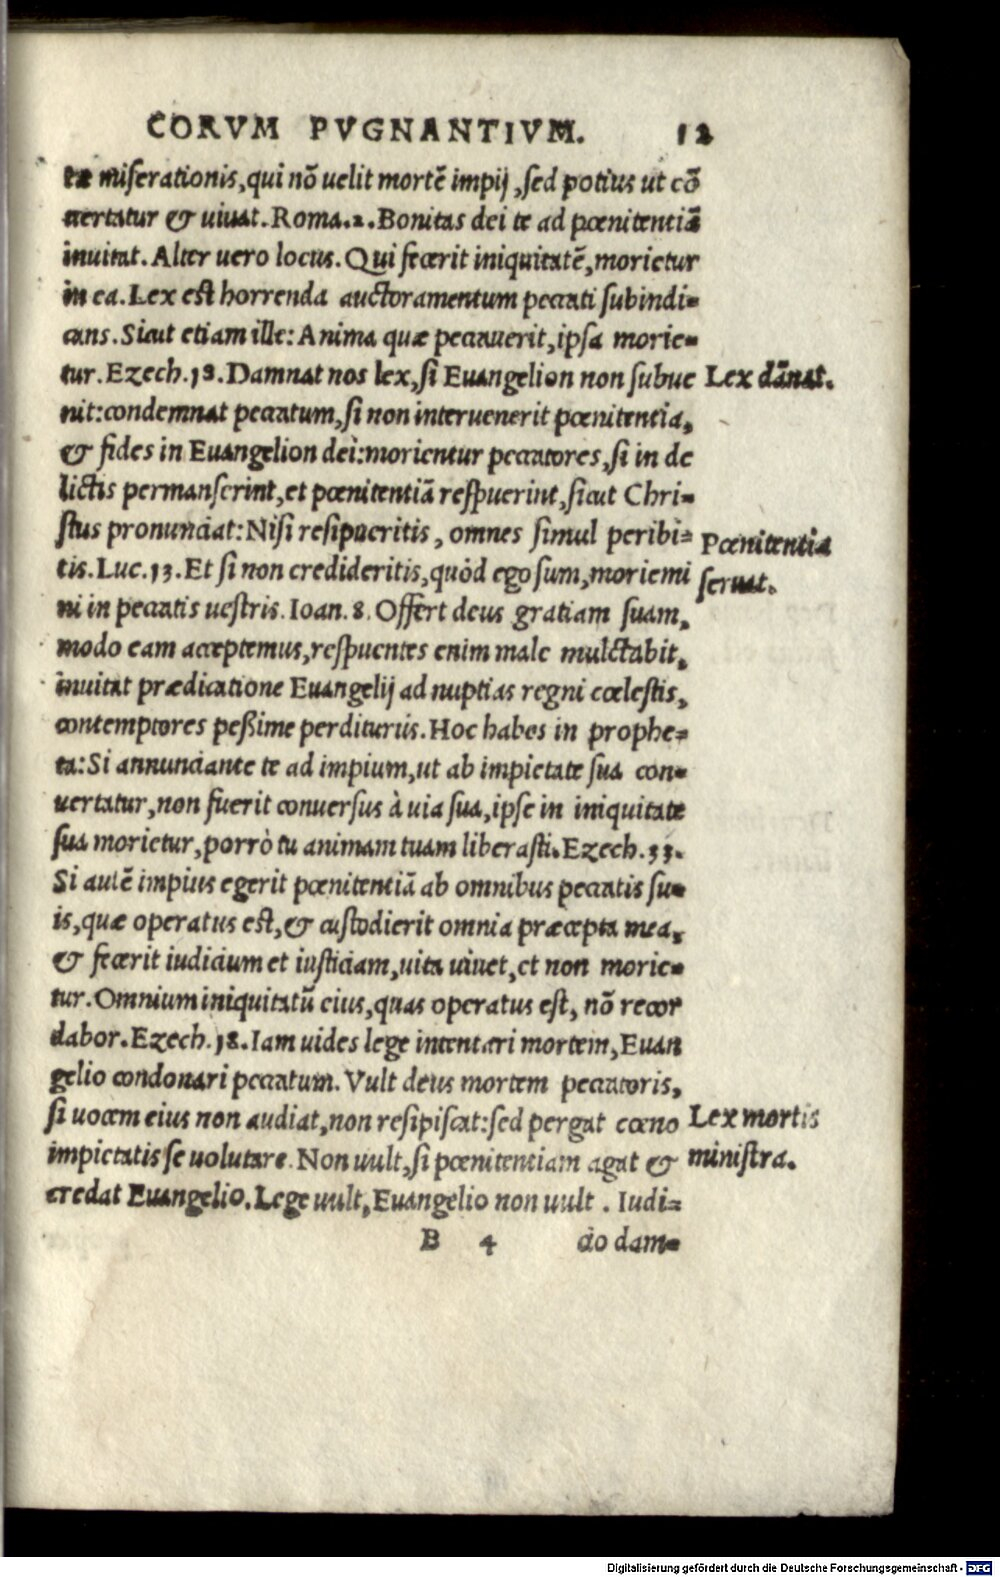 CORVM PVGNANTIVM. 12
tæ miserationis, qui nõ uelit mortẽ impij, sed potius ut cõ
uertatur & uiuat. Roma. 2. Bonitas dei te ad pœnitentiã
inuitat. Alter uero locus. Qui fecerit iniquitatẽ, morietur
in ea. Lex est horrenda auctoramentum peccati subindi=
cans. Sicut etiam ille: Anima quæ peccauerit, ipsa morie=
tur. Ezech. 18. Damnat nos lex, si Euangelion non subue
Lex dãnat.
nit: condemnat peccatum, si non interuenerit pœnitentia,
& fides in Euangelion dei: morientur peccatores, si in de
lictis permanserint, et pœnitentiã respuerint, sicut Chri=
stus pronunciat: Nisi resipueritis, omnes simul peribi=
Pœnitentia
tis. Luc. 13. Et si non credideritis, quòd ego sum, moriemi
seruat.
ni in peccatis uestris. Ioan. 8. Offert deus gratiam suam,
modo eam acceptemus, respuentes enim male mulctabit,
inuitat prædicatione Euangelij ad nuptias regni cœlestis,
contemptores peßime perditurus. Hoc habes in prophe=
ta: Si annunciante te ad impium, ut ab impietate sua con=
uertatur, non fuerit conuersus à uia sua, ipse in iniquitate
sua morietur, porrò tu animam tuam liberasti. Ezech. 33.
Si autẽ impius egerit pœnitentiã ab omnibus peccatis su=
is, quæ operatus est, & custodierit omnia præcepta mea,
& fecerit iudicium et iusticiam, uita uiuet, et non morie=
tur. Omnium iniquitatũ eius, quas operatus est, nõ recor
dabor. Ezech. 18. Iam uides lege intentari mortem, Euan
gelio condonari peccatum. Vult deus mortem peccatoris,
si uocem eius non audiat, non resipiscat: sed pergat cœno
Lex mortis
impietatis se uolutare. Non uult, si pœnitentiam agat &
ministra.
credat Euangelio. Lege uult, Euangelio non uult. Iudi=
B 4 do dam=
Digitalisierung gefördert durch die Deutsche Forschungsgemeinschaft - DFG